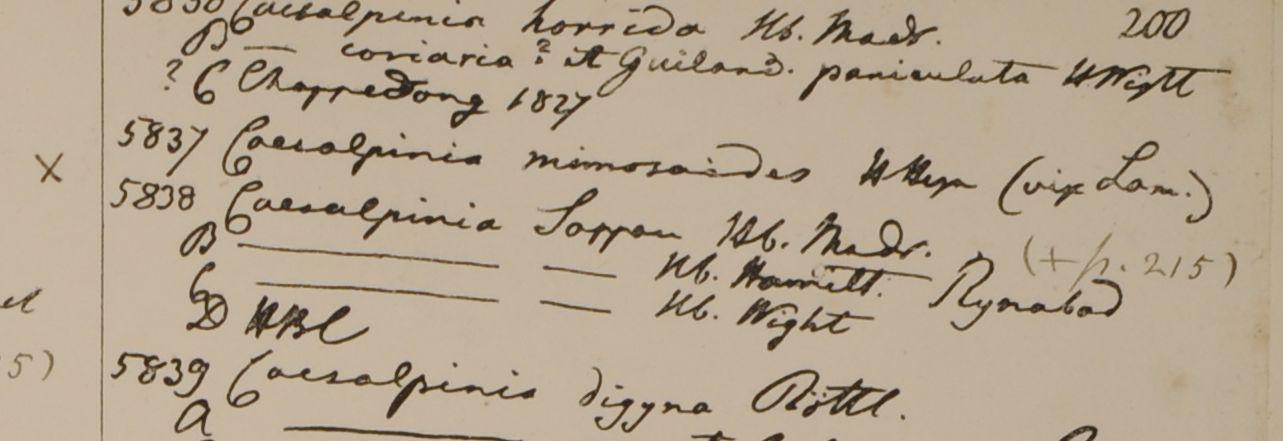 Caesalpinia horrida Hb. Madr. 200
B — coriaria? et Guiland. paniculata HWight
? C Chappedong 1827
5837 Caesalpinia mimosaides HHeyn (vix Lam.)
× 5838 Caesalpinia Sappan Hb. Madr.
B — — Hb. Hamilt. Rynabad (+ p. 215)
C — — Hb. Wight
D HBC
5839 Caesalpinia digyna Rottl.
5)
A —